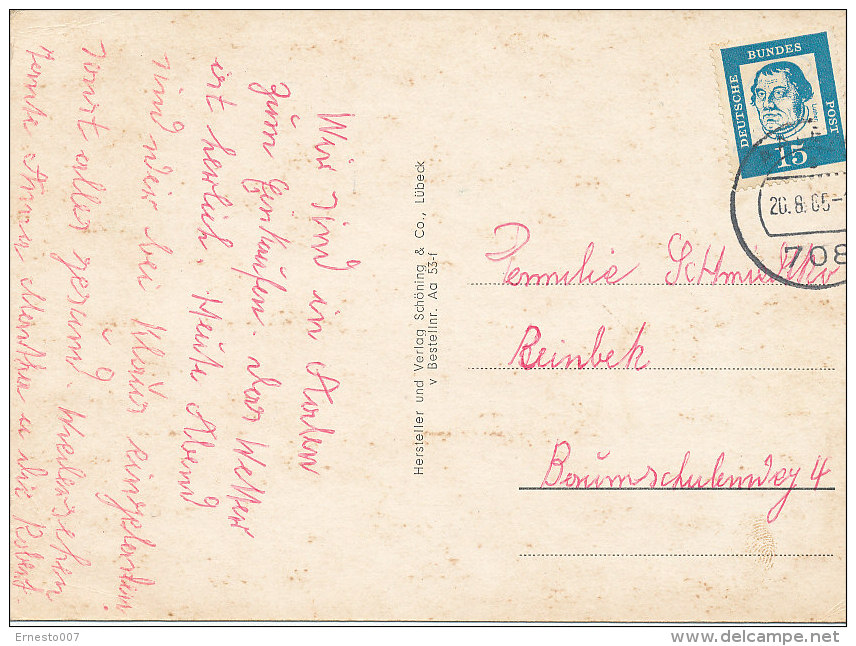 Wir sind in Aalen
zum Einkaufen. Das Wetter
ist herrlich. Heute Abend
sind wir bei Klaus eingeladen.
Sonst alles gesund Wiedersehen
Tante Anna Martha u die Robert
Hersteller und Verlag Schöning & Co., Lübeck
v Bestellnr. Aa 53-f
DEUTSCHE BUNDES POST
Luther
15
20.8.65-
708
Familie Schmidtke
Reinbek
Baumschulenweg 4
Ernesto007
delcampe.net